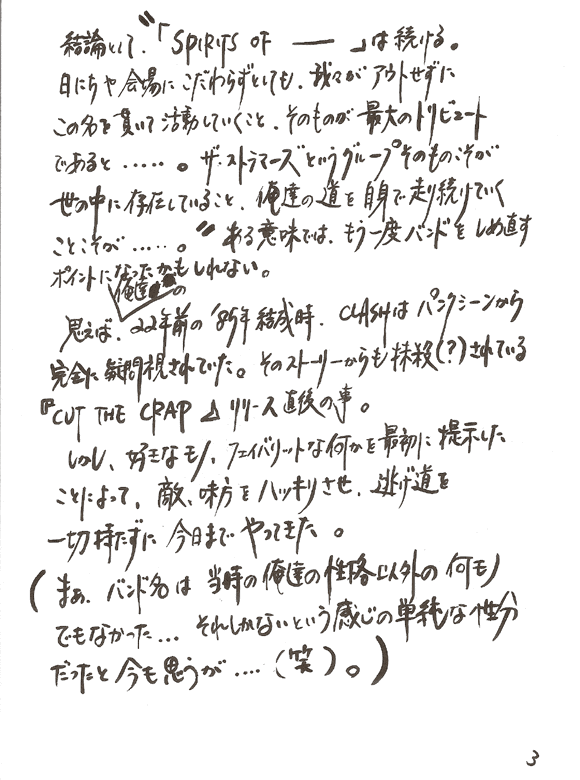 結論として、“「SPIRITS OF ー」は続ける。
日にちや会場にこだわらずとしても、我々がアウトせずに
この名を貫いて活動していくこと、そのものが最大のトリビュート
であると……。ザ・ストラマーズというグループそのものこそが
世の中に存在していること、俺達の道を自身で走り続けていく
ことこそが……。”ある意味では、もう一度バンドをしめ直す
ポイントになったかもしれない。
俺達の
思えば、22年前の'85年結成時、CLASHはパンクシーンから
完全に疑問視されていた。そのストーリーからも抹殺(?)されている
『CUT THE CRAP』リリース直後の事。
しかし、好きなモノ、フェイバリットな何かを最初に提示した
ことによって、敵、味方をハッキリさせ、逃げ道を
一切持たずに今日までやってきた。
(まぁ、バンド名は当時の俺達の性格以外の何モノ
でもなかった…それしかないという感じの単純な性分
だったと今も思うが….(笑)。)
3